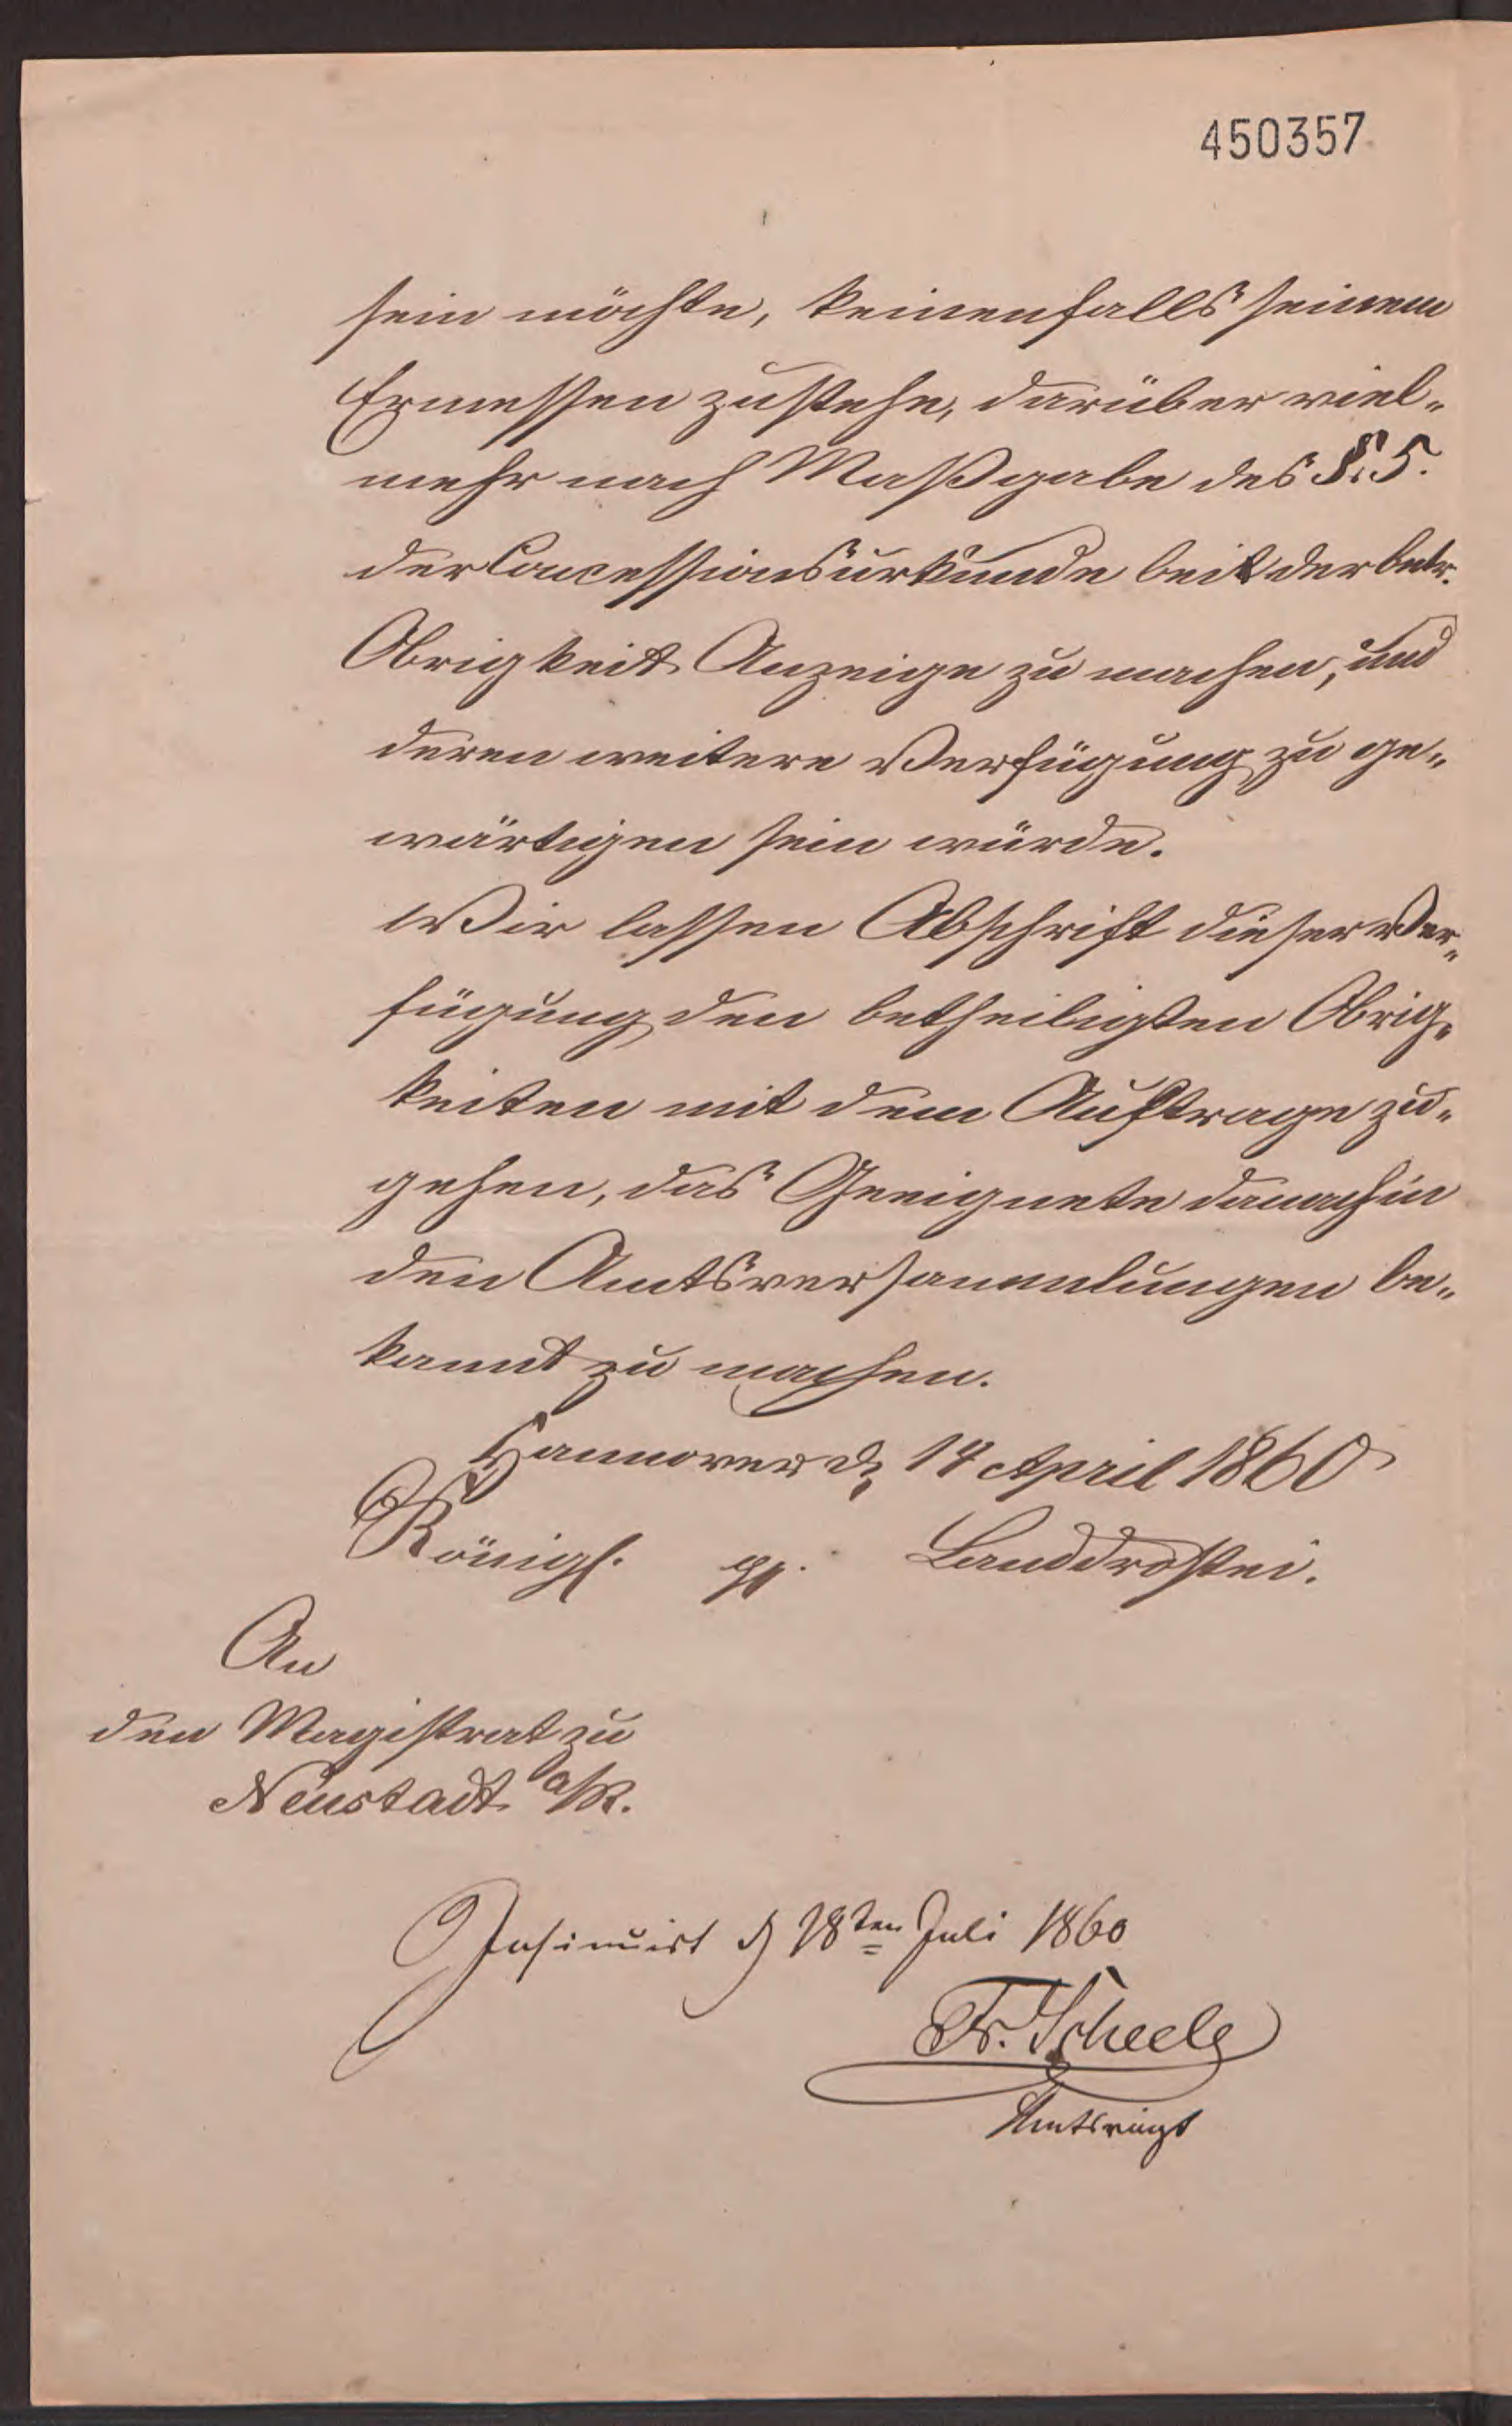 450357
sein möchte, keinenfalls seinem
Ermessen zustehe, darüber viel-
mehr nach Maßgabe des §. 5.
der Concessionsurkunde bei der betr.
Obrigkeit Anzeige zu machen, und
deren weitere Verfügung zu ge-
wärtigen sein würde.
Wir lassen Abschrift dieser Ver-
fügung den betheiligten Obrig-
keiten mit dem Auftrage zu-
gehen, das Geeignete danach in
den Amtsversammlungen be-
kannt zu machen.
Hannover d. 14 April 1860
Königl. pp. Landdrostei.
An
den Magistrat zu
Neustadt a/R.
Insinuirt d 18ten Juli 1860
Fr. Scheele
Amtsvogt